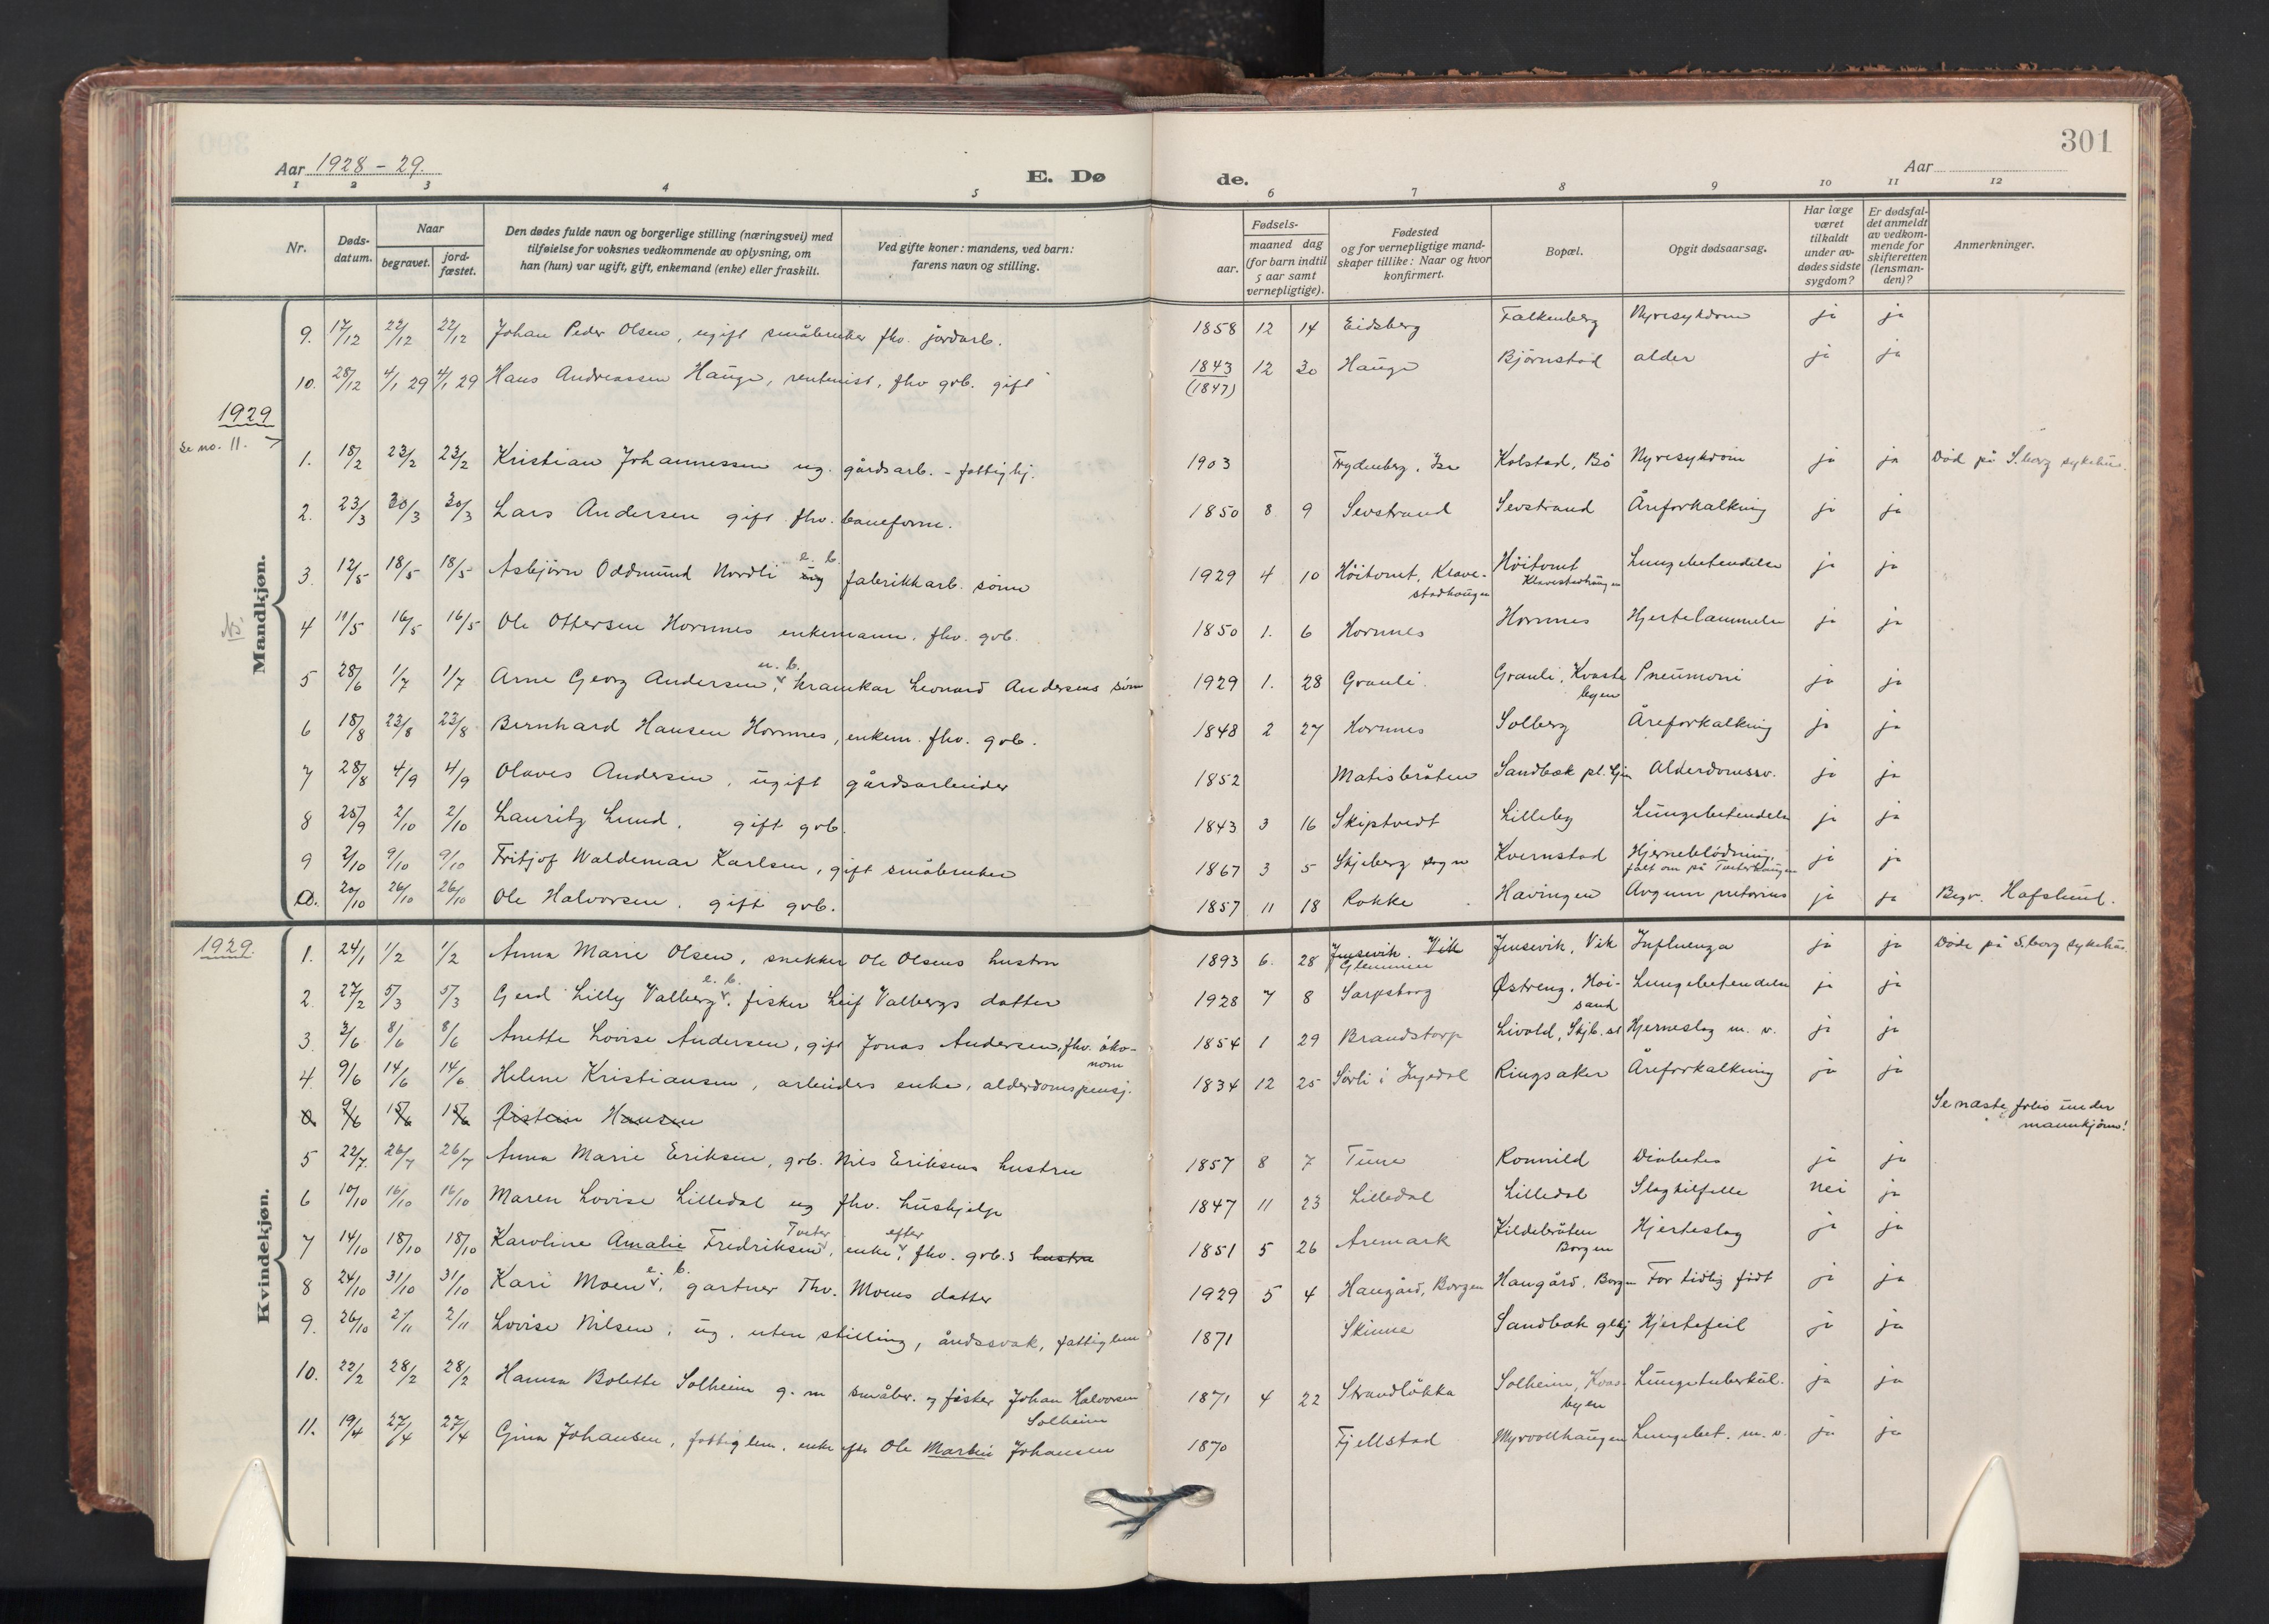 301
Aar 1928 – 29.
E. Dø
de.
Aar
1 2 3 4 5 6 7 8 9 10 11 12
Nr.
Døds-datum.
Naar
begravet.
jord-fæstet.
Den dødes fulde navn og borgerlige stilling (næringsvei) med
tilføielse for voksnes vedkommende av oplysning, om
han (hun) var ugift, gift, enkemand (enke) eller fraskilt.
Ved gifte koner: mandens, ved barn:
farens navn og stilling.
Fødsels-
aar.
maaned dag
(for barn indtil
5 aar samt
vernepligtige).
Fødested
og for vernepligtige mand-
skaper tillike: Naar og hvor
konfirmert.
Bopæl.
Opgit dødsaarsag.
Har læge
været
tilkaldt
under av-
dødes sidste
sygdom?
Er dødsfal-
det anmeldt
av vedkom-
mende for
skifteretten
(lensman-
den)?
Anmerkninger.
Mandkjøn.
9. 17/12 22/12 22/12 Johan Peder Olsen, ugift småbruker fhv. jordarb. 1858 12 14 Eidsberg Falkenberg Nyresykdom ja ja
10. 28/12 4/1 29 4/1 29 Hans Andreassen Hauge, rentenist, fhv gvb. gift 1843 (1847) 12 30 Hauge Björnstad alder ja ja
1929
Se no. 11.
1. 18/2 23/2 23/2 Kristian Johannessen ug. gårdsarb. - fattighj. 1903 Frydenberg, Ise Kolstad, Bö Nyresykdom ja ja Död på S.borg sykehus.
2. 23/3 30/3 30/3 Lars Andersen gift fhv. baneform. 1850 8 9 Sevstrand Sevstrand Åreforkalkning ja ja
3. 12/5 18/5 18/5 Asbjörn Oddmund Nordli ug e. b. fabrikkarb. sönn 1929 4 10 Höitomt, Klave-stadhaugen Höitomt Klavestadhaugen Lungebetendelse ja ja
4 11/5 16/5 16/5 Ole Ottersen Hornnes enkemann. fhv. gvb. 1850 1. 6 Hornnes Hornnes Hjertelammelse ja ja
5 28/6 1/7 1/7 Arne Georg Andersen, u. b. krankar Leonard Andersens sönn 1929 1. 28 Granli Granli, Kvastebyen Pneumoni ja ja
6 18/8 23/8 23/8 Bernhard Hansen Hornnes, enkem. fhv. gvb. 1848 2 27 Hornnes Solberg Åreforkalkning ja ja
7 28/8 4/9 4/9 Olaves Andersen, ugift gårdsarbeider 1852 Matisbråten Sandbæk pl.hjm Alderdomssv. ja ja
8 25/9 2/10 2/10 Lauritz Lund. gift gvb. 1843 3 16 Skiptvedt Lilleby Lungebetendelse ja ja
9 2/10 9/10 9/10 Fritjof Waldemar Karlsen, gift småbruker 1867 3 5 Skjeberg sogn Kvernstad Hjerneblödning, falt om på Tveterhaugen ja ja
10. 20/10 26/10 26/10 Ole Halvorsen. gift gvb. 1857 11 18 Rokke Havingen ja ja Begr. Hafslund.
1929.
Kvindekjøn.
1. 24/1 1/2 1/2 Anna Marie Olsen, snekker Ole Olsens hustru 1893 6. 28 Jensevik. Vik Glemmen Jensevik, Vik Influenza ja ja Döde på S.borg sykehus.
2. 27/2 5/3 5/3 Gerd Lilly Valberg e. b. fisker Leif Valbergs datter 1928 7 8 Sarpsborg Østreng, Höi-sand Lungebetendelse ja ja
3. 3/6 8/6 8/6 Anette Lovise Andersen, gift Jonas Andersen, fhv. öko-nom 1854 1 29 Brandstorp Livold, Skjb. st Hjerneslag m. v. ja ja
4. 9/6 14/6 14/6 Helene Kristiansen, arbeiders enke, alderdomspensj. 1834 12 25 Sörli i Ingedal Ringsaker Åreforkalkning ja ja
9/6 15/6 15/6 Öistein Hansen Se næste folio under mannkjönn!
5 22/7. 26/7 26/7 Anna Marie Eriksen, gvb. Nils Eriksens hustru 1857 8 7 Tune Romnild Diabetes ja ja
6 10/10 16/10 16/10 Maren Lovise Lilledal ug fhv. hushjelp 1847 11 23 Lilledal Lilledal Slagtilfelle nei ja
7 14/10 18/10 18/10 Karoline Amalie Fredriksen Tveter, enke efter, fhv. gvb.s hustru 1851 5 26 Aremark Kildebråten Borgen Hjerteslag ja ja
8 24/10 31/10 31/10 Kari Moen e. b. gartner Thv. Moens datter 1929 5 4 Haugård, Borgen Haugård, Borgen For tidlig födt ja ja
9. 26/10 2/11 2/11 Lovise Nilsen, ug. uten stilling, åndssvak, fattiglem 1871 Skinne Sandbæk glhj Hjertefeil ja ja
10. 22/2 28/2 28/2 Hanna Bolette Solheim g. m småbr. og fisker Johan Halvorsen Solheim 1871 4 22 Strandlökka Solheim, Kvas-byen Lungetuberkul. ja ja
11. 19/4 27/4 27/4 Gina Johansen, fattiglem, enke efter Ole Martin Johansen 1870 Fjellstad Myrvollhaugen Lungebet. m. v. ja ja